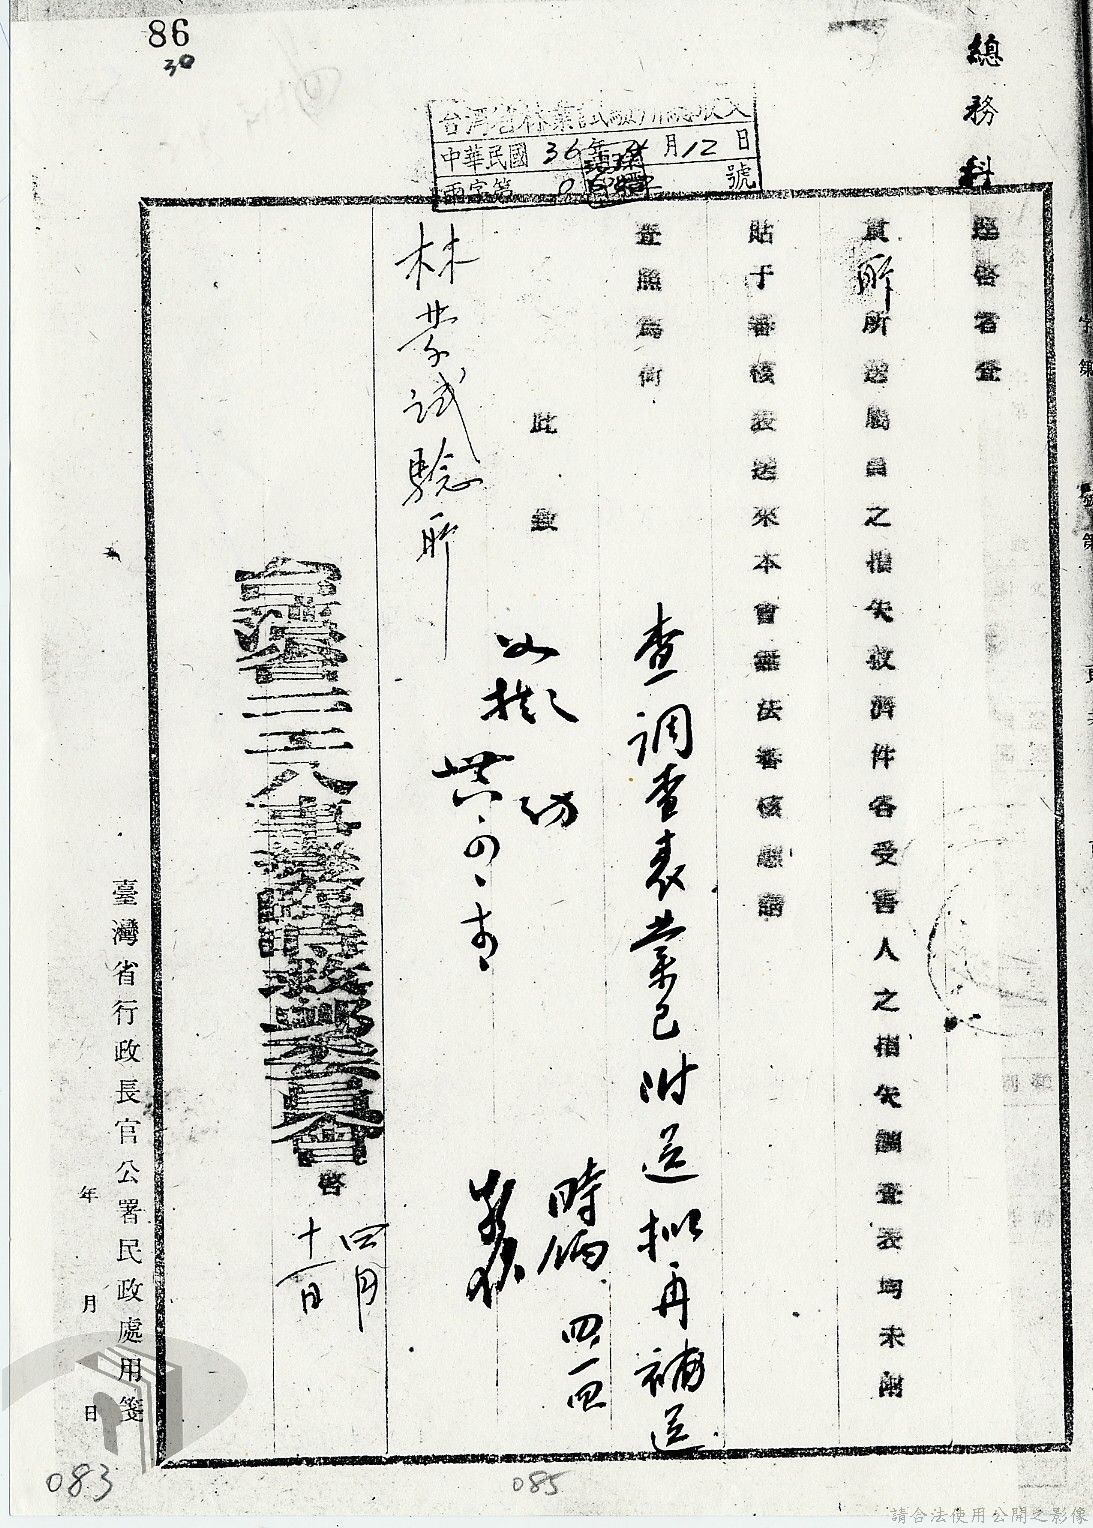 86
30
總務科
台灣省林業試驗所總收文
中華民國36年4月12日
字第 號
逕啓者查
貴所所送屬員之損失救濟件各受害人之損失調查表均未附
貼于審核表送來本會無法審核應請
查照為荷
此致
林業試驗所
查調查表業已附送擬再補送
如擬
四.一四
台灣省二二八事變臨時救卹委員會啓
四月
十一日
臺灣省行政長官公署民政處用箋
年
月
日
083
085
請合法使用公開之影像